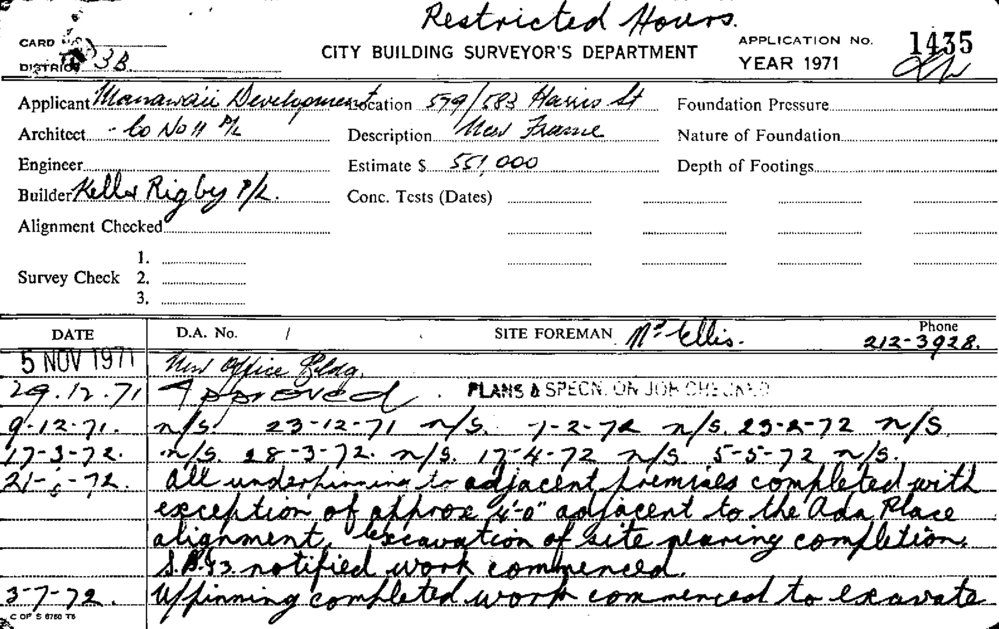 Restricted Hours.
CARD No.
DISTRICT 3B
CITY BUILDING SURVEYOR'S DEPARTMENT
APPLICATION No. 1435
YEAR 1971
Applicant Manawaii Development Location 579/583 Harris St Foundation Pressure
Architect - Co No 11 P/L Description New Frame Nature of Foundation
Engineer Estimate $ 551,000 Depth of Footings
Builder Keller Rigby P/L. Conc. Tests (Dates)
Alignment Checked
1.
Survey Check 2.
3.
DATE D.A. No. / SITE FOREMAN Mr Ellis. Phone 212-3928.
5 NOV 1971 New Office Bldg.
29.12.71 Approved. PLANS & SPECN. ON JOB CHECKED
9-12-71. n/S. 23-12-71 n/S. 1-2-72 n/S. 23-2-72 n/S
17-3-72. n/S. 28-3-72. n/S. 17-4-72 n/S 5-5-72 n/S.
21- -72. All underpinning to adjacent premises completed with
exception of approx 4'-0" adjacent to the Ada Place
alignment. Excavation of site nearing completion.
notified work commenced.
3-7-72. U/pinning completed work commenced to excavate
C OF S 6760 T5